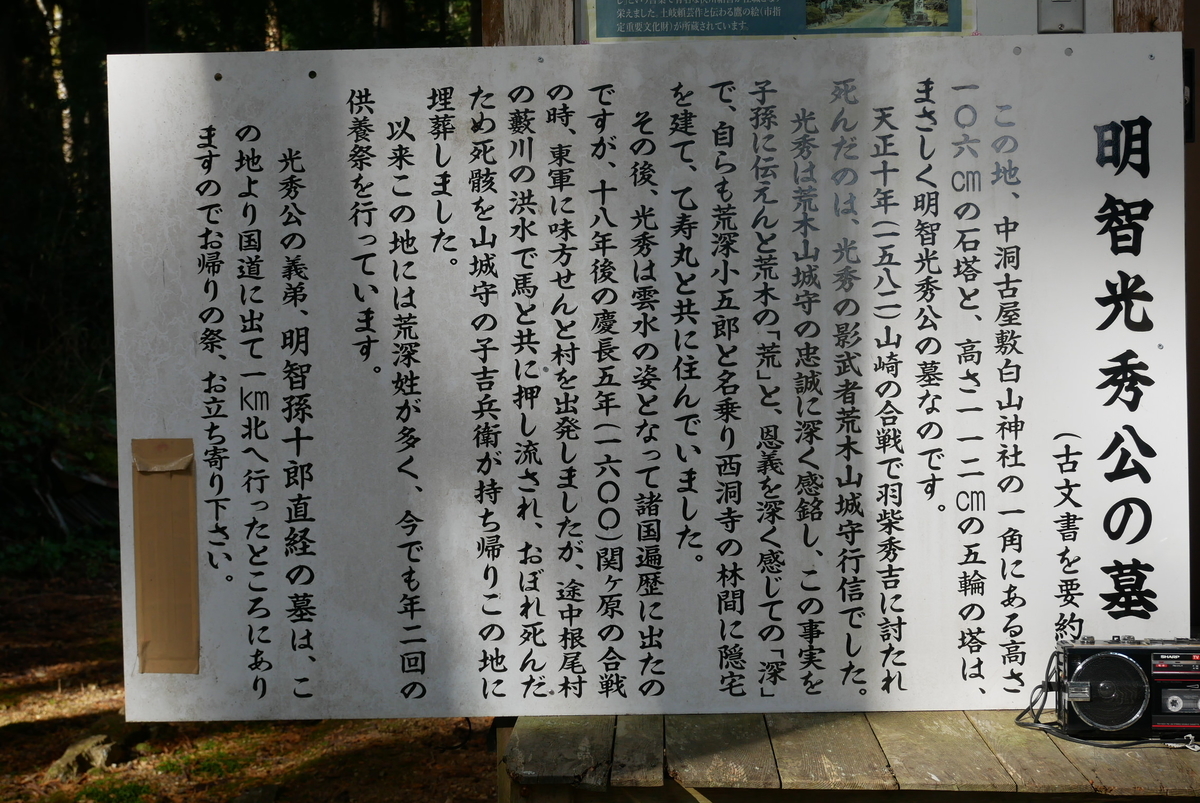 栄えました。土岐頼芸作と伝わる鷹の絵(市指
定重要文化財)が所蔵されています。
明智光秀公の墓
(古文書を要約
この地、中洞古屋敷白山神社の一角にある高さ
一〇六cmの石塔と、高さ一一二cmの五輪の塔は、
まさしく明智光秀公の墓なのです。
天正十年(一五八二)山崎の合戦で羽柴秀吉に討たれ
死んだのは、光秀の影武者荒木山城守行信でした。
光秀は荒木山城守の忠誠に深く感銘し、この事実を
子孫に伝えんと荒木の「荒」と、恩義を深く感じての「深」
で、自らも荒深小五郎と名乗り西洞寺の林間に隠宅
を建て、乙寿丸と共に住んでいました。
その後、光秀は雲水の姿となって諸国遍歴に出たの
ですが、十八年後の慶長五年(一六〇〇)関ヶ原の合戦
の時、東軍に味方せんと村を出発しましたが、途中根尾村
の藪川の洪水で馬と共に押し流され、おぼれ死んだ
ため死骸を山城守の子吉兵衛が持ち帰りこの地に
埋葬しました。
以来この地には荒深姓が多く、今でも年二回の
供養祭を行っています。
光秀公の義弟、明智孫十郎直経の墓は、こ
の地より国道に出て一km北へ行ったところにあり
ますのでお帰りの祭、お立ち寄り下さい。
SHARP